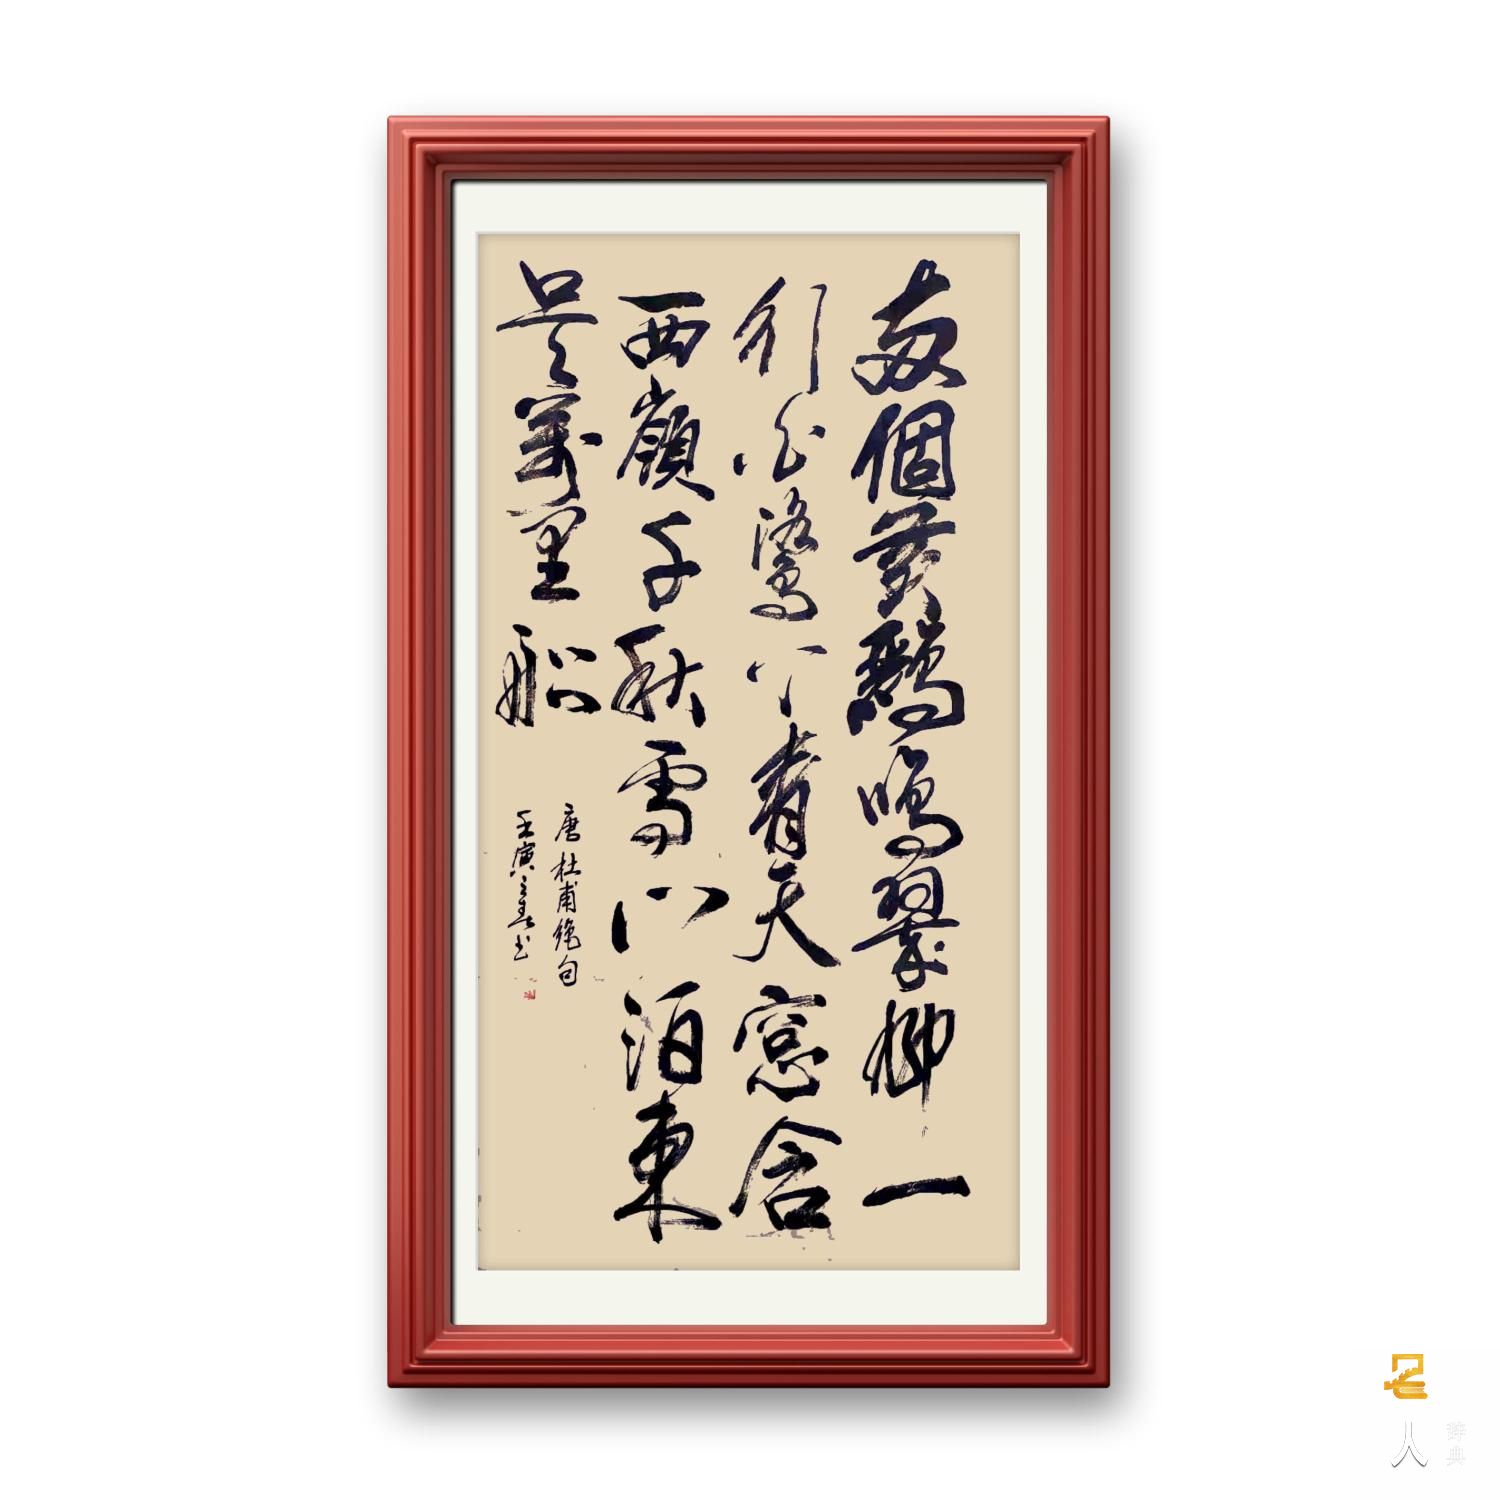 兩個黃鸝鳴翠柳一
行白鷺上青天窓含
西嶺千秋雪門泊東
吳萬里船
唐杜甫絕句
壬寅之春书
名人
辞典